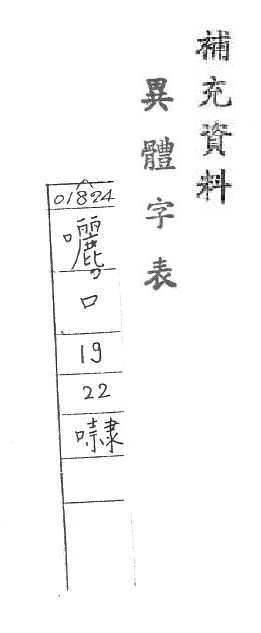 補充資料
異體字表
01824
囇
口
19
22
㗣